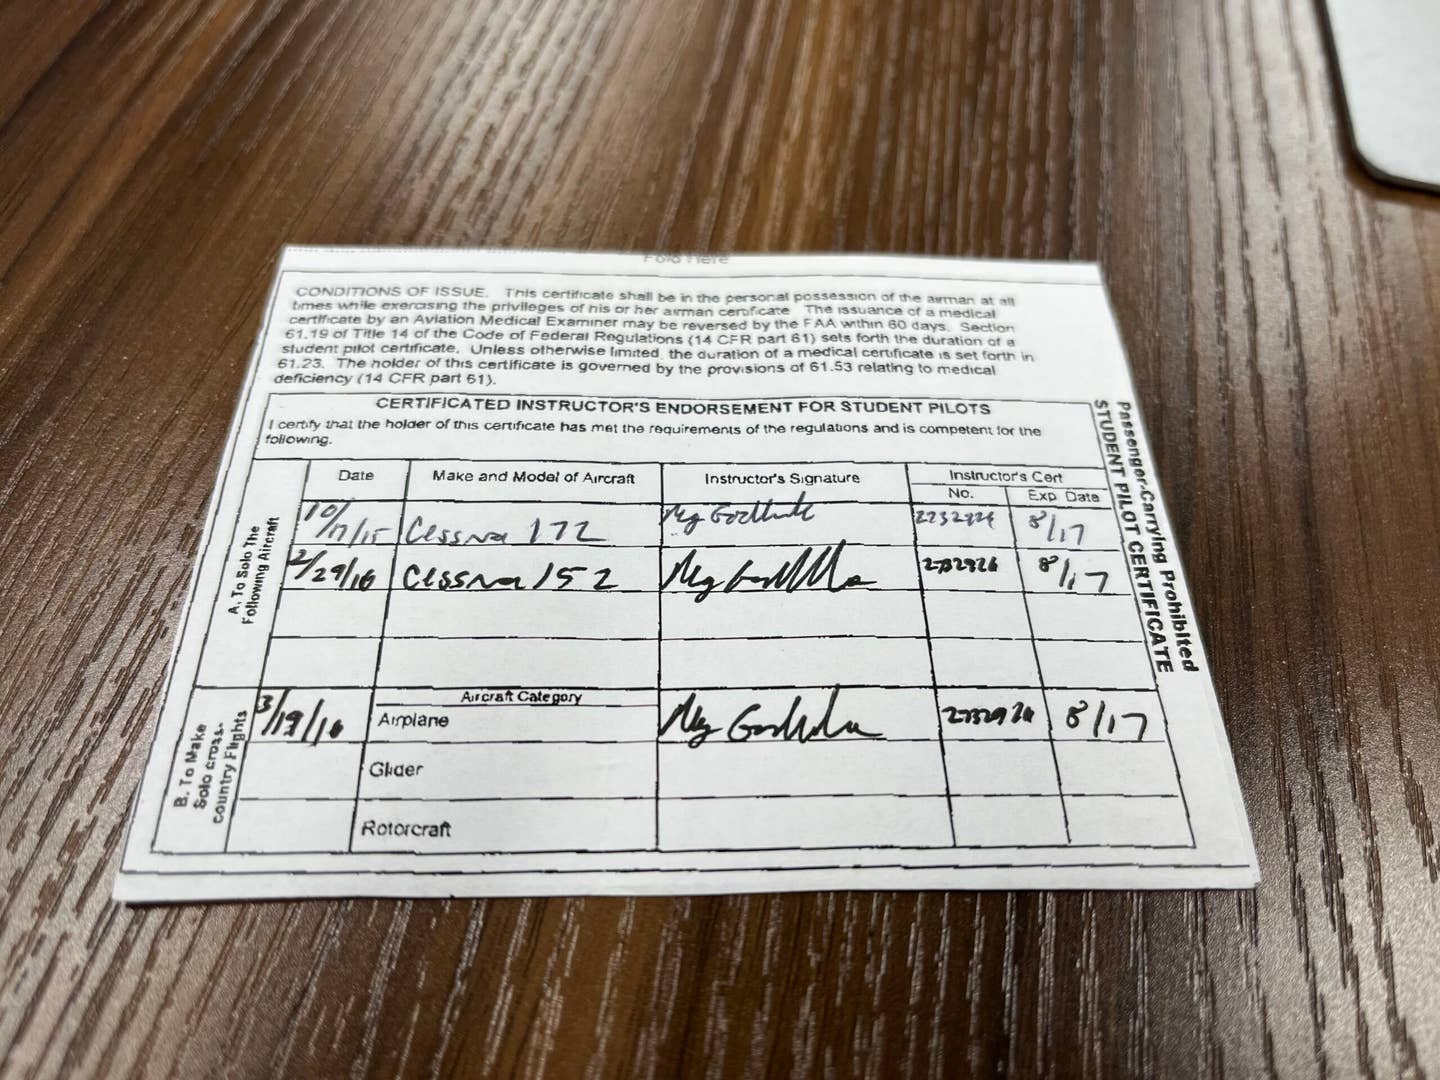 Fold Here
CONDITIONS OF ISSUE. This certificate shall be in the personal possession of the airman at all
times while exercising the privileges of his or her airman certificate The issuance of a medical
certificate by an Aviation Medical Examiner may be reversed by the FAA within 60 days. Section
61.19 of Title 14 of the Code of Federal Regulations (14 CFR part 61) sets forth the duration of a
student pilot certificate. Unless otherwise limited, the duration of a medical certificate is set forth in
61.23. The holder of this certificate is governed by the provisions of 61.53 relating to medical
deficiency (14 CFR part 61).
CERTIFICATED INSTRUCTOR'S ENDORSEMENT FOR STUDENT PILOTS
I certify that the holder of this certificate has met the requirements of the regulations and is competent for the
following.
Date Make and Model of Aircraft Instructor's Signature Instructor's Cert
No. Exp Date
A. To Solo The
Following Aircraft
10/17/15 Cessna 172 8/17
2/29/16 Cessna 152 2732926 8/17
B. To Make
Solo cross-
country Flights
Aircraft Category
3/19/16 Airplane 2732926 8/17
Glider
Rotorcraft
Passenger-Carrying Prohibited
STUDENT PILOT CERTIFICATE